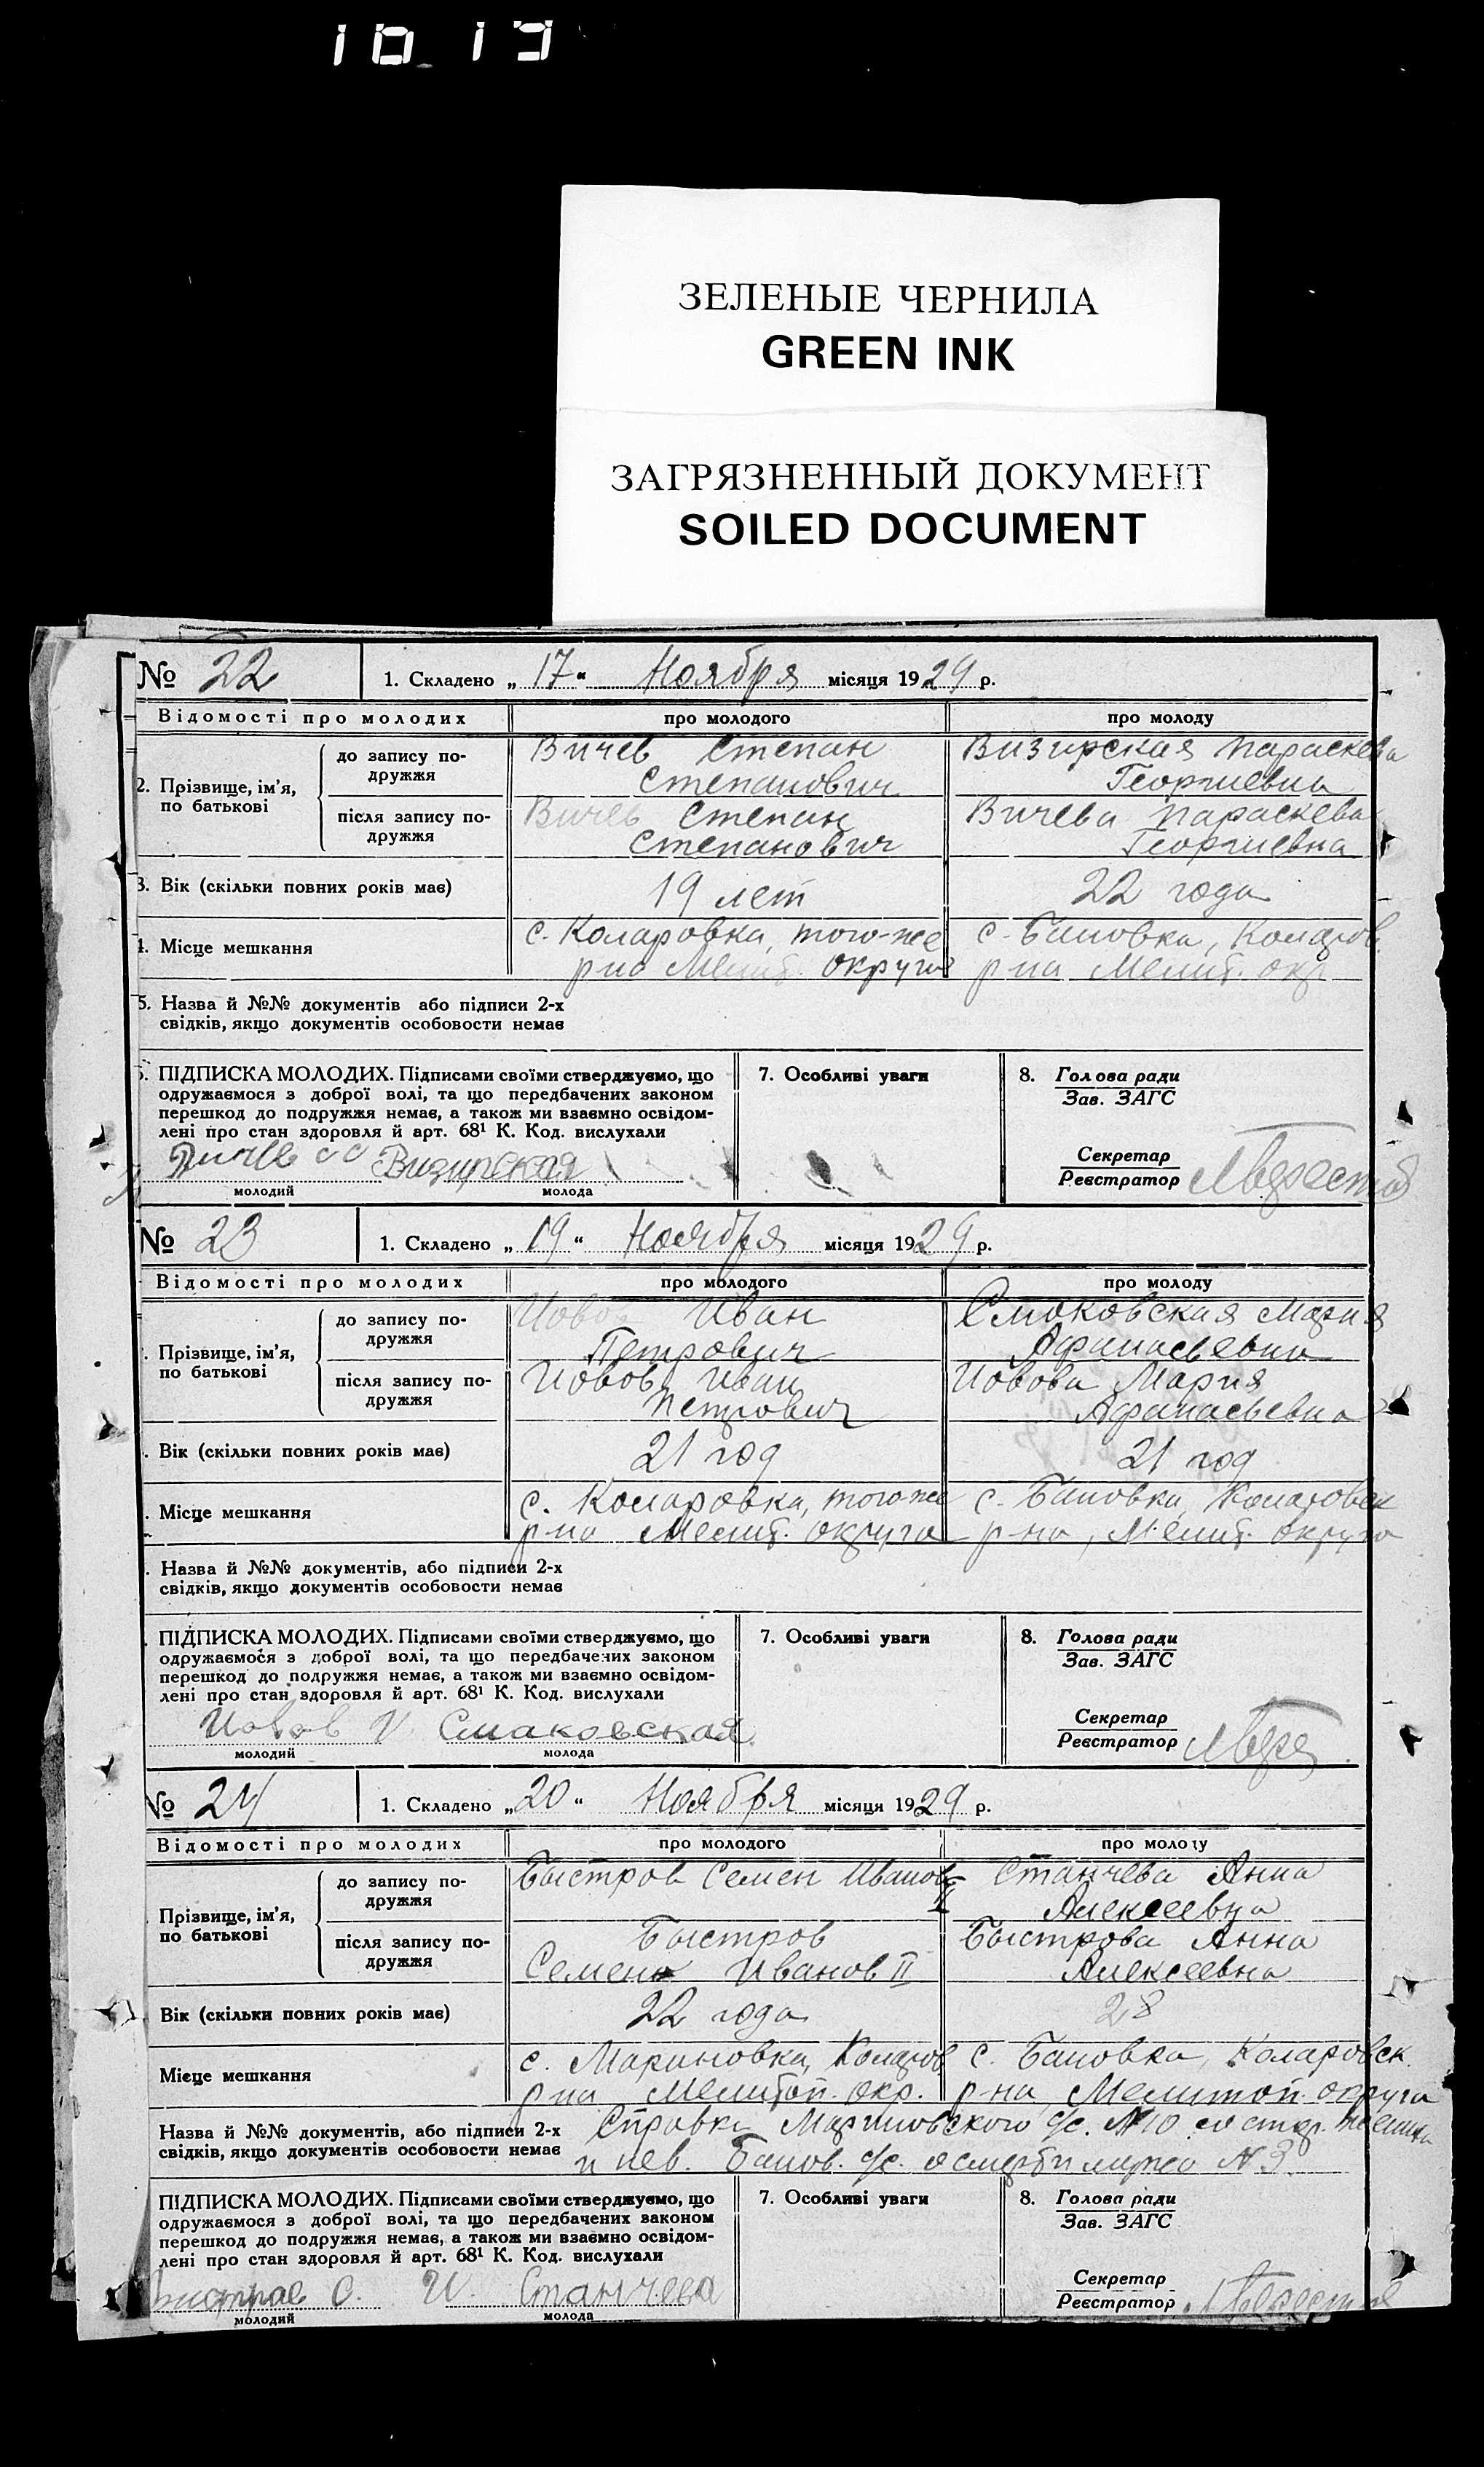 10 19
ЗЕЛЕНЫЕ ЧЕРНИЛА
GREEN INK
ЗАГРЯЗНЕННЫЙ ДОКУМЕНТ
SOILED DOCUMENT
№ 22 1. Складено „17“ Ноября місяця 1929 р.
Відомості про молодих про молодого про молоду
2. Прізвище, ім'я, по батькові
до запису подружжя
Вичев Степан Степанович
Визирская Параскева Георгиевна
після запису подружжя
Вичев Степан Степанович
Вичева Параскева Георгиевна
3. Вік (скільки повних років має) 19 лет 22 года
4. Місце мешкання
с. Коларовка, того-же р-на Мелит. округа
с. Бановка, Коларов. р-на Мелит. окр.
5. Назва й №№ документів або підписи 2-х
свідків, якщо документів особовости немає
ПІДПИСКА МОЛОДИХ. Підписами своїми стверджуємо, що
одружаємося з доброї волі, та що передбачених законом
перешкод до подружжя немає, а також ми взаємно освідом-
лені про стан здоровля й арт. 68¹ К. Код. вислухали
Вичев С С Визирская
молодий молода
7. Особливі уваги
8. Голова ради
Зав. ЗАГС
Секретар
Реєстратор
№ 23 1. Складено „19“ Ноября місяця 1929 р.
Відомості про молодих про молодого про молоду
Прізвище, ім'я, по батькові
до запису подружжя
Иовов Иван Петрович
Смоковская Мария Афанасьевна
після запису подружжя
Иовов Иван Петрович
Иовова Мария Афанасьевна
Вік (скільки повних років має) 21 год 21 год
Місце мешкання
с. Коларовка, того-же р-на Мелит. округа
с. Бановка, Коларовск р-на, Мелит. округа
Назва й №№ документів, або підписи 2-х
свідків, якщо документів особовости немає
ПІДПИСКА МОЛОДИХ. Підписами своїми стверджуємо, що
одружаємося з доброї волі, та що передбачених законом
перешкод до подружжя немає, а також ми взаємно освідом-
лені про стан здоровля й арт. 68¹ К. Код. вислухали
Иовов И Смаковская
молодий молода
7. Особливі уваги
8. Голова ради
Зав. ЗАГС
Секретар
Реєстратор
№ 24 1. Складено „20“ Ноября місяця 1929 р.
Відомості про молодих про молодого про молоду
Прізвище, ім'я, по батькові
до запису подружжя
Быстров Семен Иванов II
Станчева Анна Алексеевна
після запису подружжя
Быстров Семен Иванов II
Быстрова Анна Алексеевна
Вік (скільки повних років має) 22 года 28
Місце мешкання
с. Мариновка, Коларов р-на Мелитоп. окр.
с. Бановка, Коларовск. р-на, Мелитоп. округа
Назва й №№ документів, або підписи 2-х
свідків, якщо документів особовости немає
Справка Мариновского с/с. №10
и нев. Банов. с/с. о смерти мужа №3.
ПІДПИСКА МОЛОДИХ. Підписами своїми стверджуємо, що
одружаємося з доброї волі, та що передбачених законом
перешкод до подружжя немає, а також ми взаємно освідом-
лені про стан здоровля й арт. 68¹ К. Код. вислухали
Быстров С. И. Станчева
молодий молода
7. Особливі уваги
8. Голова ради
Зав. ЗАГС
Секретар
Реєстратор